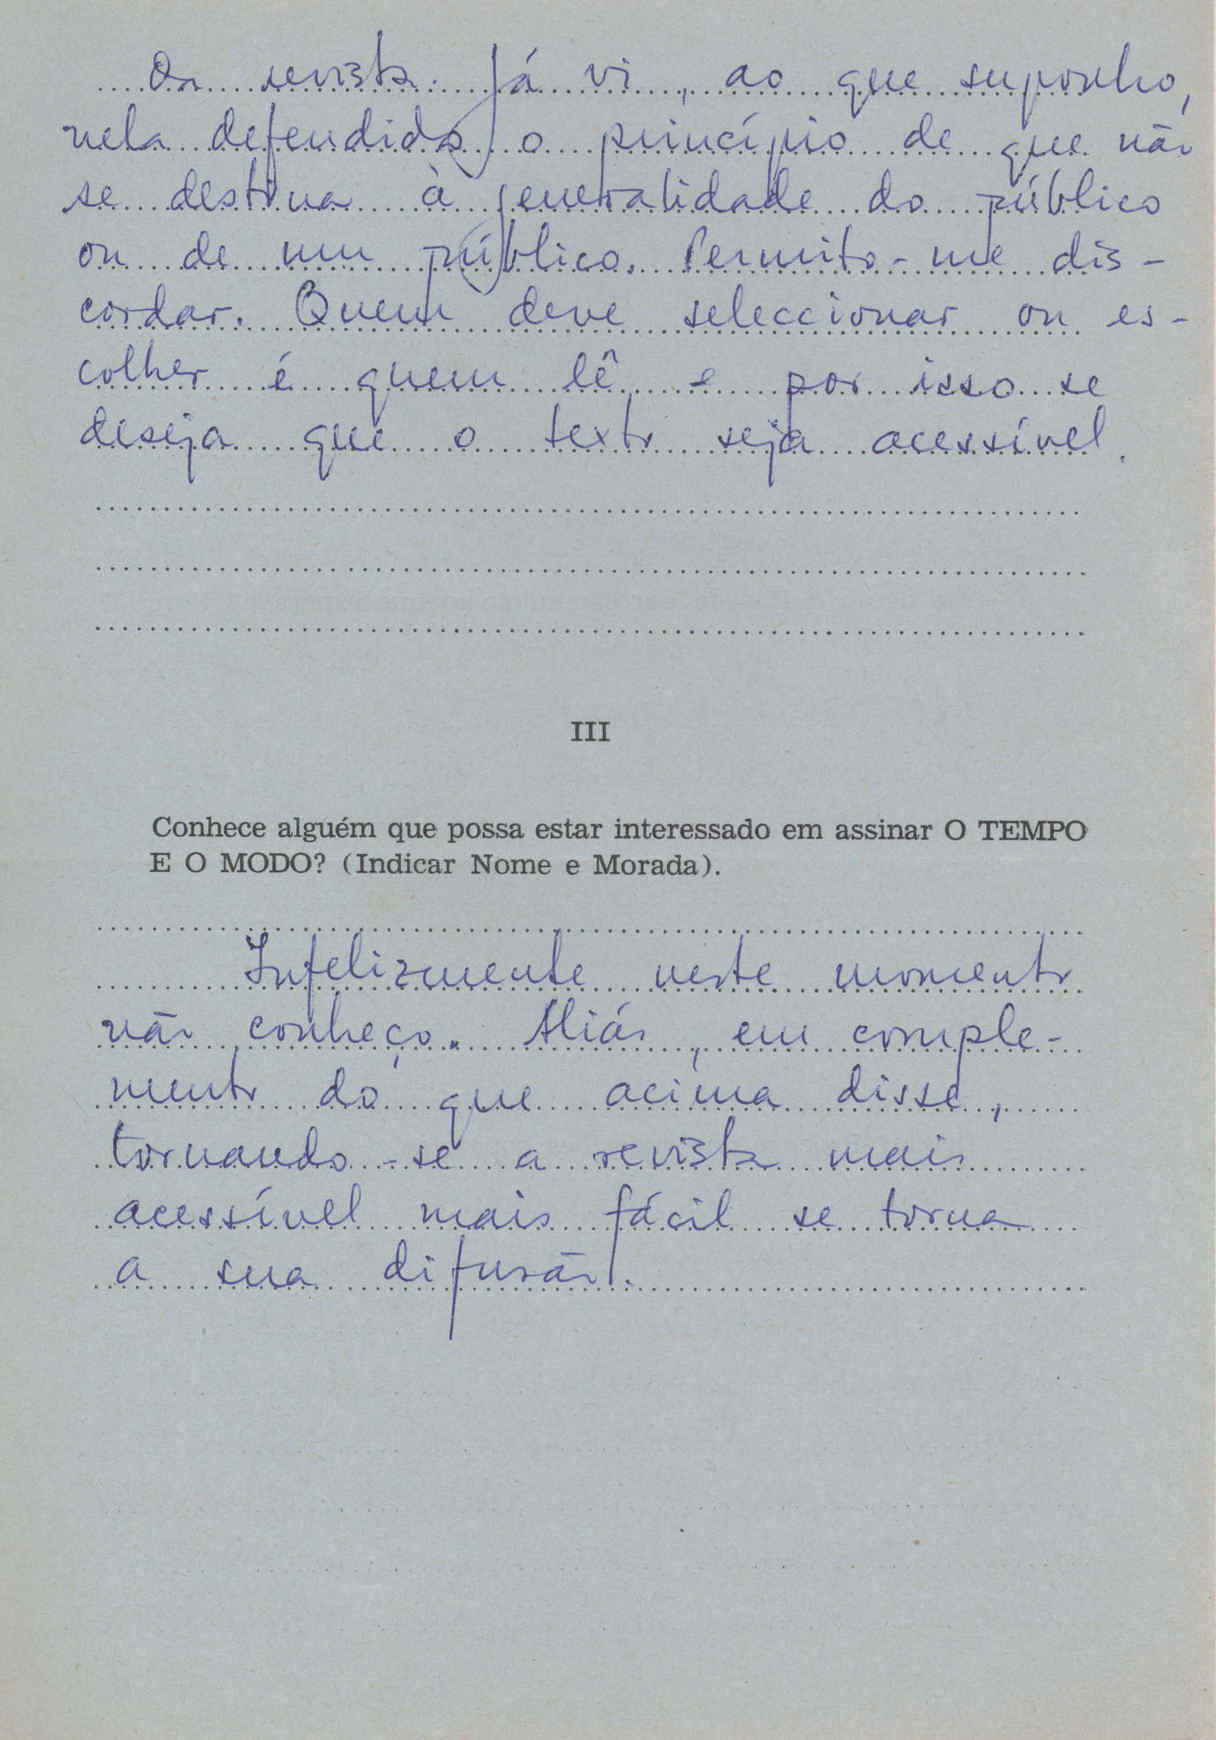 da revista. Já vi, ao que suponho,
nela defendido o princípio de que não
se destina à generalidade do público
ou de um público. Permito-me dis-
cordar. Quem deve seleccionar ou es-
colher é quem lê e por isso se
deseja que o texto seja acessível.
III
Conhece alguém que possa estar interessado em assinar O TEMPO
E O MODO? (Indicar Nome e Morada).
Infelizmente neste momento
não conheço. Aliás, em comple-
mento do que acima disse,
tornando-se a revista mais
acessível mais fácil se torna
a sua difusão.